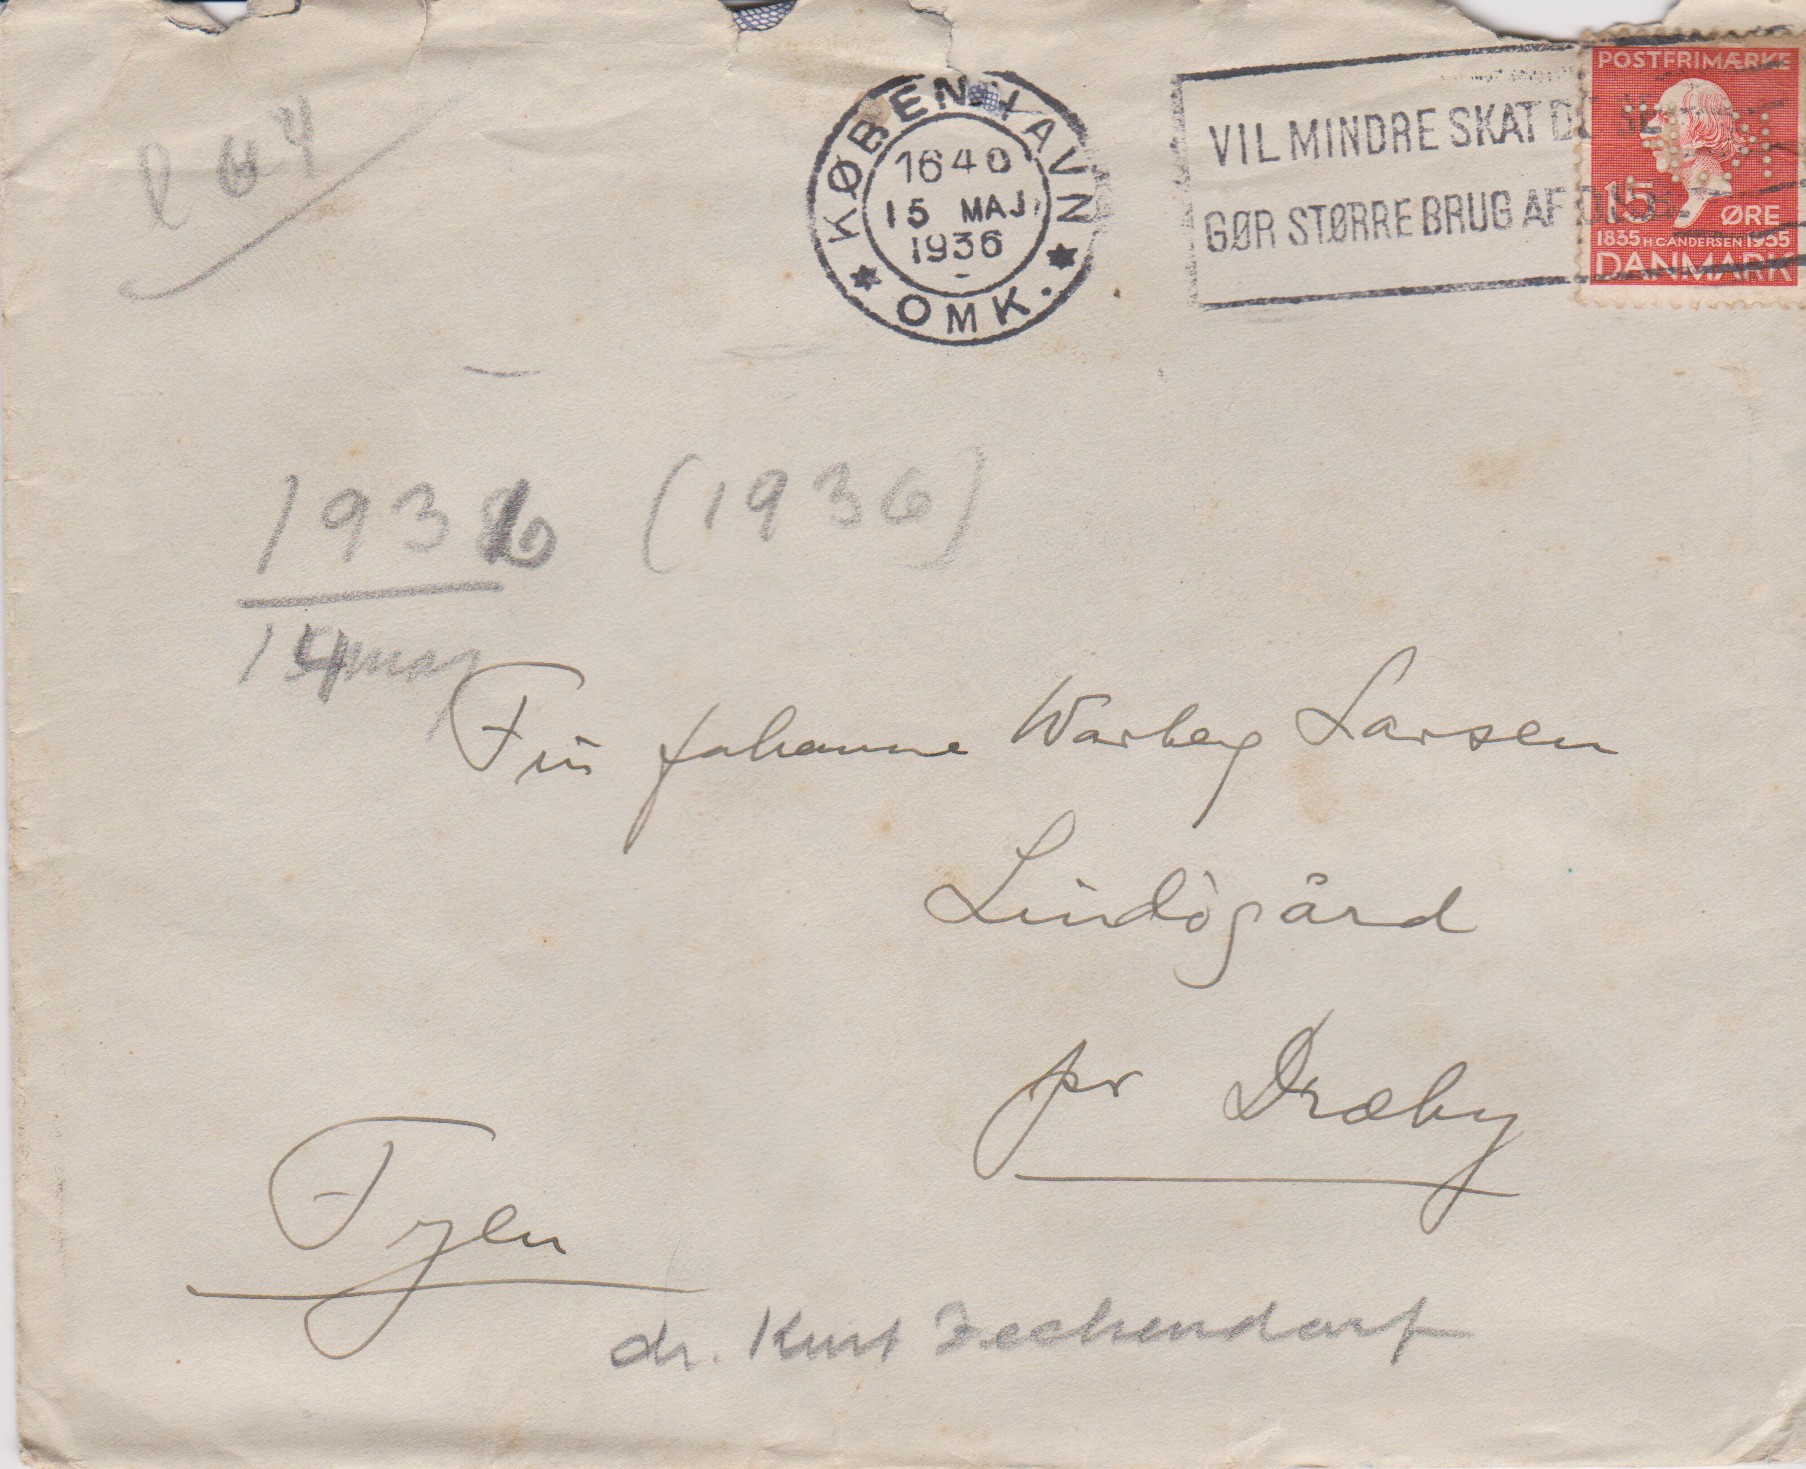 KØBENHAVN
1640
15 MAJ
1936
* OMK. *
VIL MINDRE SKAT DU SE
GØR STØRRE BRUG AF
POSTFRIMÆRKE
15 ØRE
1835 H.C.ANDERSEN 1935
DANMARK
1936 (1936)
14 maj
Fru Johanne Warberg Larsen
Lindøgård
pr Dræby
Fyen
dr. Kurt Zechendorf